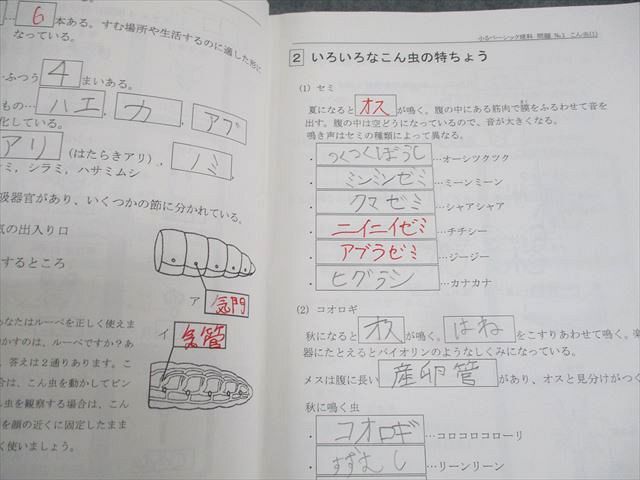 6 本ある。すむ場所や生活するのに適した形に
なっている。
ふつう 4 まいある。
もの…ハエ, カ, アブ
化している。
アリ (はたらきアリ), ノミ,
ミ, シラミ, ハサミムシ
吸器官があり、いくつかの節に分かれている。
気の出入り口
するところ
ア 気門
イ 気管
あなたはルーペを正しく使えま
かすのは、ルーペですか?あ
、答えは2通りあります。こ
合は、こん虫を動かしてピン
ん虫を観察する場合は、こん
を顔の近くに固定したまま
く使いましょう。
小5ベーシック理科 問題 №1 こん虫(1)
2 いろいろなこん虫の特ちょう
(1) セミ
夏になると オス が鳴く。腹の中にある筋肉で膜をふるわせて音を
出す。腹の中は空どうになっているので、音が大きくなる。
鳴き声はセミの種類によって異なる。
・つくつくぼうし…オーシツクツク
・ミンミンゼミ…ミーンミーン
・クマゼミ…シャアシャア
・ニイニイゼミ…チチシー
・アブラゼミ…ジージー
・ヒグラシ…カナカナ
(2) コオロギ
秋になると オス が鳴く。 はね をこすりあわせて鳴く。楽
器にたとえるとバイオリンのようなしくみになっている。
メスは腹に長い 産卵管 があり、オスと見分けがつく
秋に鳴く虫
・コオロギ…コロコロコローリ
・すずむし…リーンリーン